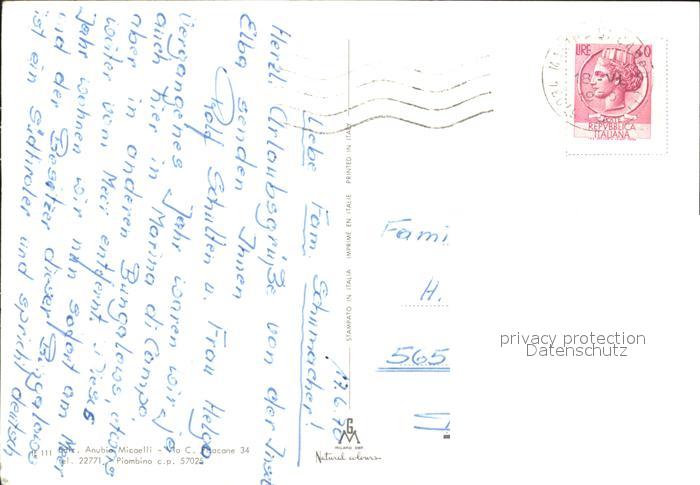 17.6.70
Liebe Fam. Schumacher!
Herzl. Urlaubsgrüße von der Insel
Elba senden Ihnen
Rolf Schulten u. Frau Helga
Vergangenes Jahr waren wir ja
auch hier in Marina di Campo,
aber in anderen Bungalows, etwas
weiter vom Meer entfernt. Dieses
Jahr wohnen wir nun sofort am Meer
und der Besitzer dieser Bungalows
ist ein Südtiroler und spricht deutsch
STAMPATO IN ITALIA IMPRIMÉ EN ITALIE PRINTED IN ITALY
LIRE 40
REPVBBLICA
ITALIANA
Fami
H.
565
privacy protection
Datenschutz
111 Anubio Micaelli - C. 34
Tel. 22771 - Piombino c.p. 57025
GM
MILANO
Natural colours